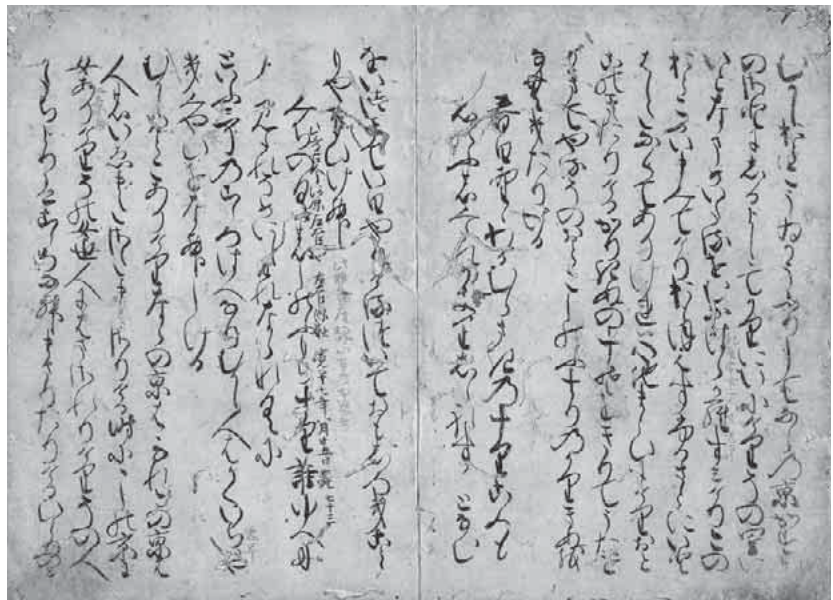 むかしおとこうゐかうふりしてならの京かすか
のさとにしるよしゝてかりにいにけりそのさとに
いとなまめいたるをんなはらからすみけりこの
おとこかいまみてけりおもほえすふるさとにいと
はしたなくてありけれは心地まとひにけりおと
このきたりけるかりきぬのすそをきりてうたを
かきてやるそのおとこしのふすりのかりきぬを
なむきたりける
春日野のわかむらさきのすりころも
しのふのみたれかきりしられす となむ
をいつきていひやりけるついておもしろきこと
ともや思ひけむ
みちのくの忍もちすり誰ゆへに
みたれそめにしわれならなくに
といふ哥の心はへなりむかし人はかくいちはやき
みやひをなんしける
むかしおとこありけりならの京ははなれこの京は
人のいゑまたさたまらさりける時ににしの京に
女ありけりその女世人にはまされりけりその人
かたちよりは心なんまさりたりけるひとりのみ